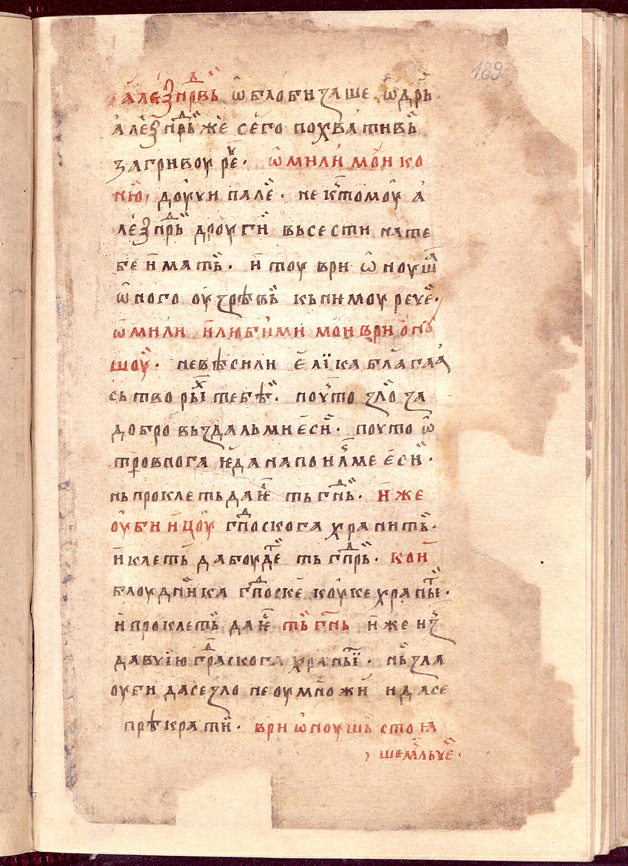 189
але́ѯⷣнрⷡ҇ь ѡблобиꙁаше ѡдрь·
але́ѯⷣнрь же сего похвативь
ꙁагривоу реⷱ҇· ѡ мили мои ко
ню, доучипале· не к томоу а
леѯⷣнрь дроуги вьсести на те
бе имать· и тоу ври ѡноуша
ѡного оуꙁрѣвь кь немоу рече·
ѡ мили и любими мои ври ѡну
шоу· не вѣси ли елїка благаа
сьтвориⷯ тебѣ· поуто ꙁло ꙁа
добро вьꙁдаль ми еси· поуто ѡ
тровнога ꙗда напоилⷭ ме еси·
нь проклеть да ѥⷭ ть гⷩь· иже
оубиицоу гⷭпоⷣскога хранить·
и клеть да боудеⷮ ть гⷭпрь· кои
блоудника гⷭпоⷣске коуке храниⷮ·
и проклеть да ѥⷭ ть гⷩь иже иꙁ
давꙋїю граⷣскога храниⷮ· нь ꙁла
оуби да се ꙁло не оумножи и да се
прѣкрати· ври ѡноушь стоꙗ
шемльче·